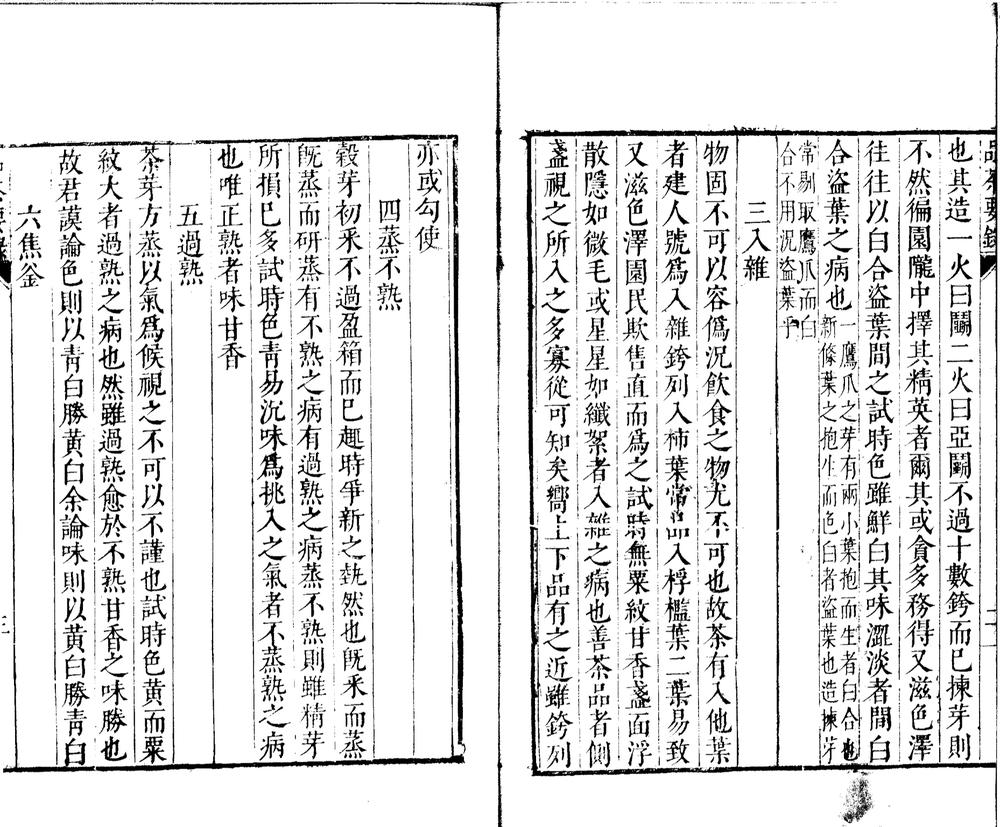 品茶要錄
也其造一火曰鬭二火曰亞鬭不過十數銙而已揀芽則
不然徧園隴中擇其精英者爾其或貪多務得又滋色澤
往往以白合盜葉間之試時色雖鮮白其味澀淡者間白
合盜葉之病也一鷹爪之芽有兩小葉抱而生者白合也
新條葉之抱生而色白者盜葉也造揀芽
常剔取鷹爪而白
合不用況盜葉乎
三入雜
物固不可以容偽況飲食之物尤不可也故茶有入他葉
者建人號爲入雜銙列入柿葉常品入桴檻葉二葉易致
又滋色澤園民欺售直而爲之試時無粟紋甘香盞面浮
散隱如微毛或星星如纖絮者入雜之病也善茶品者側
盞視之所入之多寡從可知矣嚮上下品有之近雖銙列
亦或勾使
四蒸不熟
榖芽初釆不過盈箱而已趣時爭新之埶然也旣釆而蒸
旣蒸而研蒸有不熟之病有過熟之病蒸不熟則雖精芽
所損已多試時色靑易沉味爲桃人之氣者不蒸熟之病
也唯正熟者味甘香
五過熟
茶芽方蒸以氣爲候視之不可以不謹也試時色黃而粟
紋大者過熟之病也然雖過熟愈於不熟甘香之味勝也
故君謨論色則以靑白勝黃白余論味則以黃白勝靑白
六焦釜
三